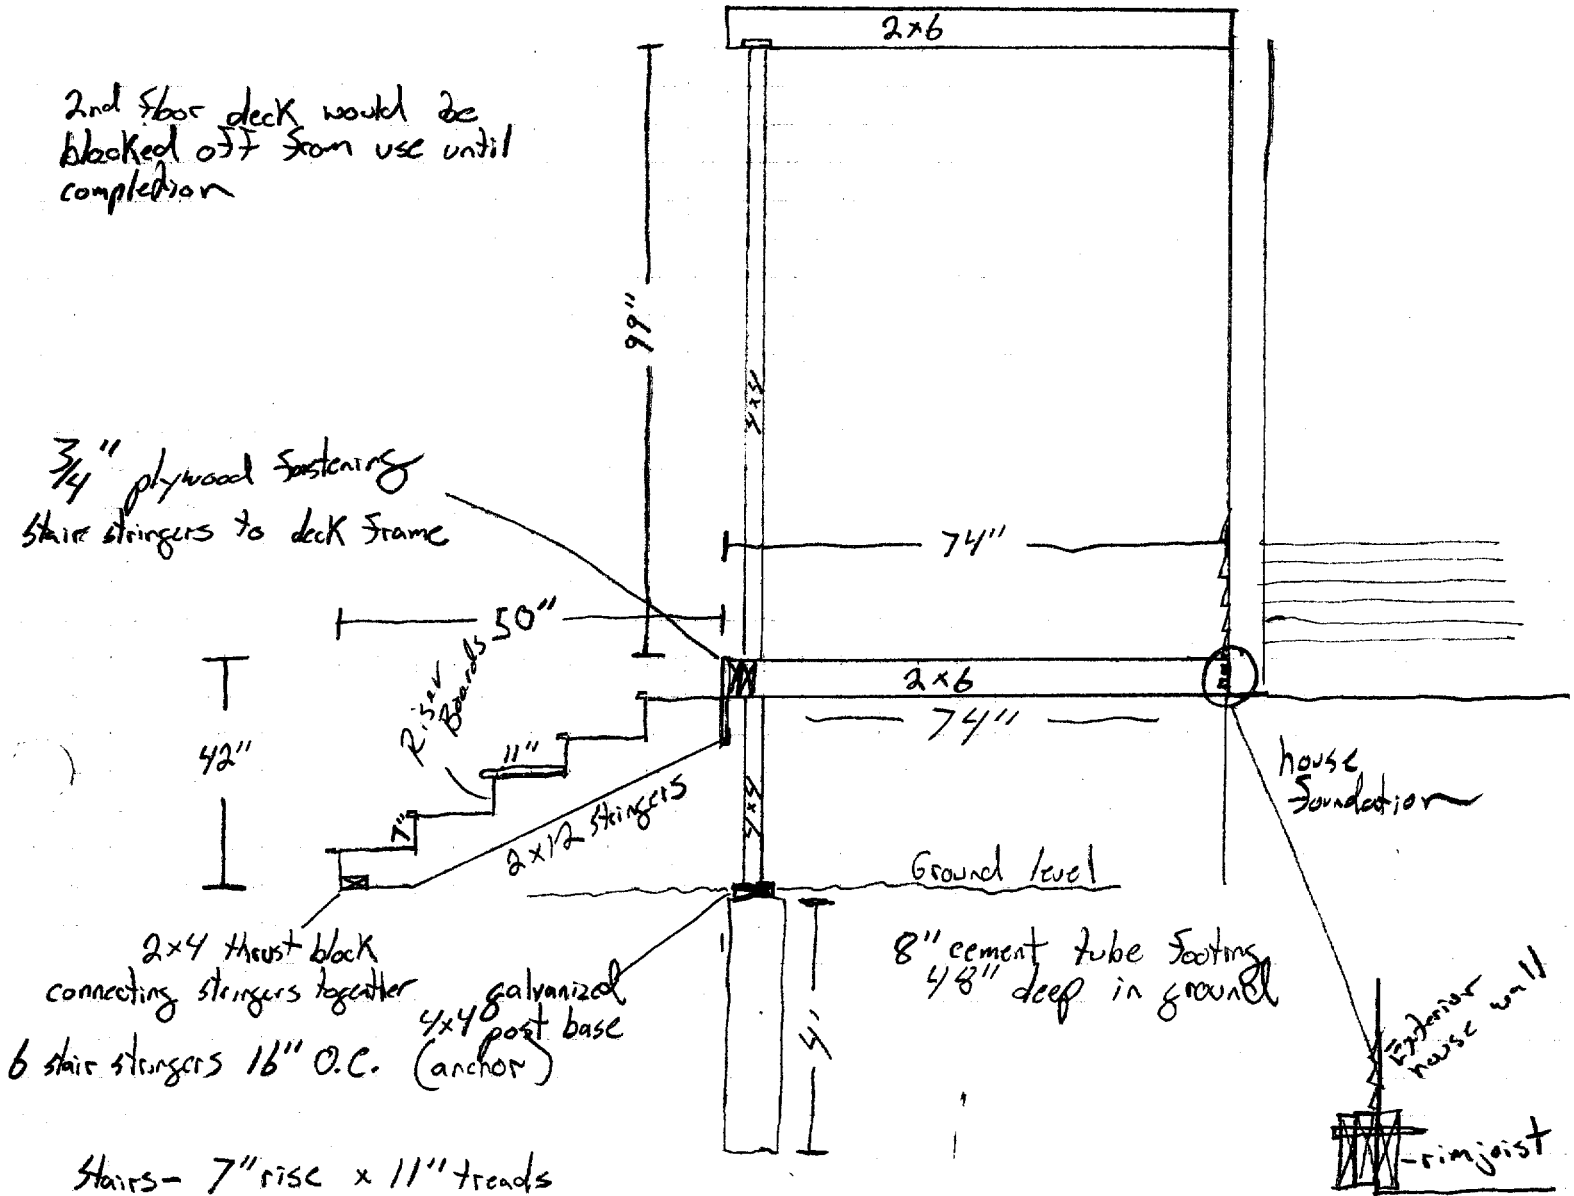 2x6
2nd floor deck would be
blocked off from use until
completion
99"
4x4
3/4" plywood fastening
stair stringers to deck frame
74"
50"
Riser
Boards
2x6
74"
42"
11"
7"
2x12 stringers
4x4
house
foundation
Ground level
2x4 thrust block
connecting stringers together
6 stair stringers 16" O.C.
4x4 galvanized
post base
(anchor)
4'
8" cement tube footing
48" deep in ground
Exterior
house wall
rim joist
Stairs- 7" rise x 11" treads